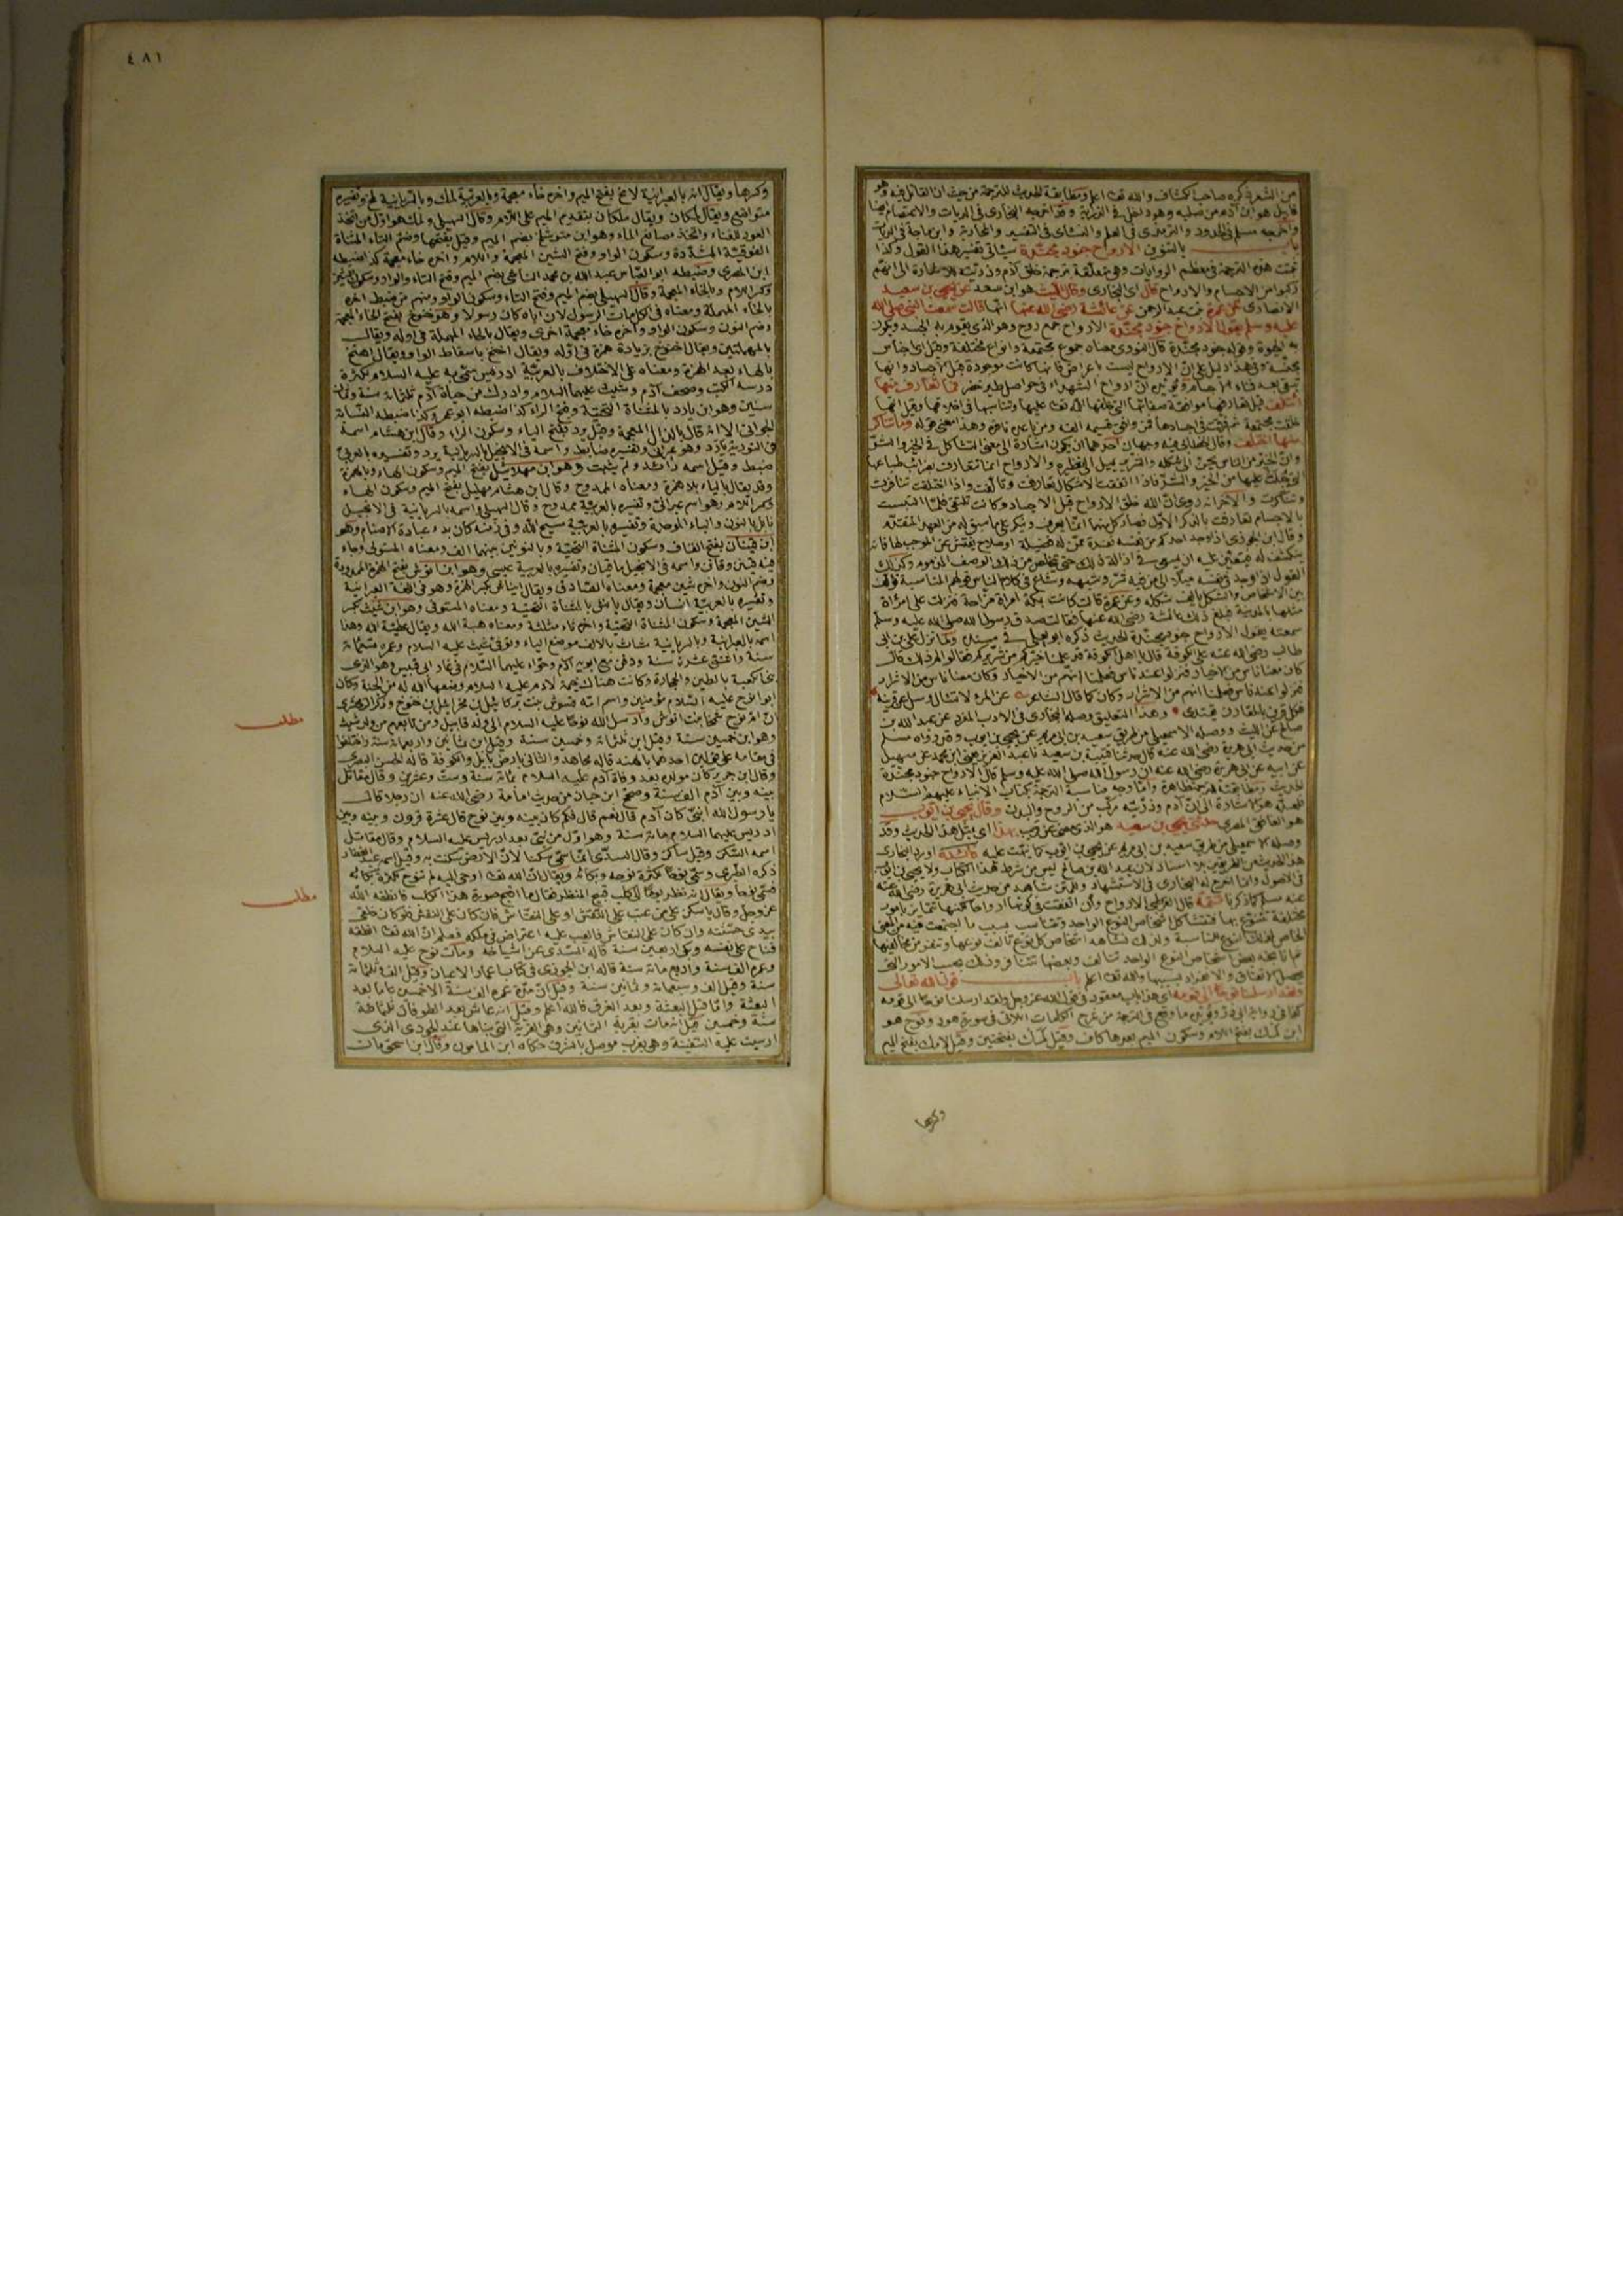 من الشعر ذكره صاحب الكشاف والله تعالى اعلم ومطابقة الحديث للترجمة من حيث ان القاتل فيه وهو
قابيل هو ابن آدم من صلبه وهو داخل في الذرية وقد اخرجه البخارى في الديات والاعتصام ايضا
واخرجه مسلم في الحدود والترمذى في العلم والنسائى في التفسير والمحاربة وابن ماجة في الديات
باب بالتنوين الارواح جنود مجندة سيأتى تفسير هذا القول وكذا
ثبتت هذه الترجمة في معظم الروايات وهى متعلقة بترجمة خلق آدم وذريته للاشارة الى انهم
ركبوا من الاجسام والارواح قال اى البخارى وقال الليث هو ابن سعد عن يحيى بن سعيد
الانصارى عن عمرة بنت عبد الرحمن عن عائشة رضى الله عنها انها قالت سمعت النبى صلى الله
عليه وسلم يقول الارواح جنود مجندة الارواح جمع روح وهو الذى يقوم به الجسد ويكون
به الحيوة وقوله جنود مجندة قال النووى معناه جموع مجتمعة وانواع مختلفة وقيل اجناس
مجنسة وفي هذا دليل على ان الارواح ليست باعراض فانها كانت موجودة قبل الاجساد وانها
تبقى بعد فناء الاجسام ويؤيده ان ارواح الشهداء في حواصل طير خضر فما تعارف منها
ائتلف قيل تعارفها موافقة صفاتها التى خلقها الله تعالى عليها وتناسبها في اخلاقها وقيل انها
خلقت مجتمعة ثم فرقت في اجسادها فمن وافق قسيمه الفه ومن باعده نافره وهذا معنى قوله وما تناكر
منها اختلف وقال الخطابى فيه وجهان احدهما ان يكون اشارة الى معنى التشاكل في الخير والشر
وان الخير من الناس يحن الى شكله والشرير يميل الى نظيره والارواح انما تتعارف بضرائب طباعها
التى جبلت عليها من الخير والشر فاذا اتفقت الاشكال تعارفت وتآلفت واذا اختلفت تنافرت
وتناكرت والآخر انه روى ان الله خلق الارواح قبل الاجساد وكانت تلتقى فلما التبست
بالاجسام تعارفت بالذكر الاول فصار كل منهما انما يعرف وينكر على ما سبق له من العهد المتقدم
وقال ابن الجوزى اذا وجد احدكم من نفسه نفرة ممن له فضيلة او صلاح يفتش عن الموجب لها فانه
ينكشف له فيتعين عليه ان يسعى في ازالة ذلك حتى يتخلص من ذلك الوصف المذموم وكذلك
القول اذا وجد في نفسه ميلا الى من فيه شر وشبهه وشاع في كلام الناس قولهم المناسبة تؤلف
بين الاشخاص والشكل يالف شكله وعن عمرة قالت كانت بمكة امراة مزاحة فنزلت على امرأة
مثلها بالمدينة فبلغ ذلك عائشة رضى الله عنها فقالت صدق رسول الله صلى الله عليه وسلم
سمعته يقول الارواح جنود مجندة الحديث ذكره ابو يعلى في مسنده ولما نزل على بن ابى
طالب رضى الله عنه على الكوفة قال يا اهل الكوفة قد علمنا خيركم من شريركم فقالوا لم ذلك قال
كان معنا ناس من الاخيار فنزلوا عند ناس فعلمنا انهم من الاخيار وكان معنا ناس من الاشرار
فنزلوا عند ناس فعلمنا انهم من الاشرار وكان كما قال الشاعر عن المرء لا تسأل وسل عن قرينه
فكل قرين بالمقارن يقتدى وهذا التعليق وصله البخارى في الادب المفرد عن عبد الله بن
صالح عن الليث ووصله الاسمعيلى من طريق سعيد بن ابى مريم عن يحيى بن ايوب وقد رواه مسلم
من حديث ابى هريرة رضى الله عنه قال حدثنا قتيبة بن سعيد نا عبد العزيز يعنى ابن محمد عن سهيل
عن ابيه عن ابى هريرة رضى الله عنه ان رسول الله صلى الله عليه وسلم قال الارواح جنود مجندة
الحديث ومطابقته للترجمة ظاهرة واما وجه مناسبة الترجمة بكتاب الانبياء عليهم السلام
فلعله هو الاشارة الى ان آدم وذريته مركب من الروح والبدن وقال يحيى بن ايوب
هو الغافقى المصرى حدثنى يحيى بن سعيد هو الذى مضى عن قريب بهذا اى بمثل هذا الحديث وقد
وصله الاسمعيلى من طريق سعيد بن ابى مريم عن يحيى بن ايوب كما نبهت عليه فائدة اورد البخارى
هذا الحديث من الطريقين بلا اسناد لان عبد الله بن صالح ليس من شرط هذا الكتاب ولا يحيى بن ايوب
في الاصول وانما اخرج له البخارى في الاستشهاد والمتن شاهد من حديث ابى هريرة رضى الله عنه
عند مسلم كما ذكرنا تتمة قال القرطبى الارواح وان اتفقت في كونها ارواحا لكنها تتمايز بامور
مختلفة تتنوع بها فتتشاكل اشخاص النوع الواحد وتتناسب بسبب ما اجتمعت فيه من المعنى
الخاص لذلك النوع للمناسبة ولذلك نشاهد اشخاص كل نوع تالف نوعها وتنفر من مخالفها
ثم انا نجد بعض اشخاص النوع الواحد تتالف وبعضها تتنافر وذلك بحسب الامور التى
يحصل الاتفاق والانفراد بسببها والله تعالى اعلم باب قول الله تعالى
ولقد ارسلنا نوحا الى قومه اى هذا باب معقود في قول الله عز وجل ولقد ارسلنا نوحا الى قومه
كذا في رواية ابى ذر ويؤيده ما وقع في الترجمة من شرح الكلمات اللاتى في سورة هود ونوح هو
ابن لمك بفتح اللام وسكون الميم بعدها كاف وقيل لمك بفتحتين وقيل لامك بفتح الميم
وكسرها
٤٨١
وكسرها ويقال انه بالعبرانية لامخ بفتح الميم واخره خاء معجمة وبالعربية لمك وبالسريانية لمخ وتفسيره
متواضع ويقال لمكان ويقال ملكان بتقديم الميم على اللام وقال السهيلى ولمك هو اول من اتخذ
العود للغناء واتخذ مصانع الماء وهو ابن متوشلخ بضم الميم وقيل بفتحها وضم التاء المثناة
الفوقية المشددة وسكون الواو وفتح الشين المعجمة واللام واخره خاء معجمة كذا ضبطه
ابن المصرى وضبطه ابو العباس عبد الله بن محمد الناشى بضم الميم وفتح التاء والواو وسكون الشين
وكسر اللام وبالخاء المعجمة وقال السهيلى بضم الميم وفتح التاء وسكون الواو ومنهم من ضبط اخره
بالحاء المهملة ومعناه في الكل مات الرسول لان اباه كان رسولا وهو خنوخ بفتح الخاء المعجمة
وضم النون وسكون الواو وآخره خاء معجمة اخرى ويقال بالحاء المهملة في اوله ويقال
بالمهملتين ويقال اخنوخ بزيادة همزة في اوله ويقال اخنخ باسقاط الواو ويقال اهنخ
بالهاء بعد الهمزة ومعناه على الاختلاف بالعربية ادريس سمى به عليه السلام لكثرة
درسه الكتب وصحف آدم وشيث عليهما السلام وادرك من حياة آدم ثلثمائة سنة وثمان
سنين وهو ابن يارد بالمثناة التحتية وفتح الراء كذا ضبطه ابو عمر وكذا ضبطه النسابة
الجوانى الا انه قال بالذال المعجمة وقيل يرد بفتح الياء وسكون الراء وقال ابن هشام اسمه
في التورية يارد وهو عبرانى وتفسيره ضابط واسمه في الانجيل بالسريانية يرد وتفسيره بالعربى
ضبط وقيل اسمه رائد ولم يثبت وهو ابن مهلائيل بفتح الميم وسكون الهاء وبالهمزة
وقد يقال بالياء بلا همزة ومعناه الممدوح وقال ابن هشام مهليل بفتح الميم وسكون الهاء
وكسر اللام وهو اسم عبرانى وتفسيره بالعربية ممدوح وقال السهيلى واسمه بالسريانية في الانجيل
نابل بالنون والباء الموحدة وتفسيره بالعربية مسبح الله وفي زمنه كان بدء عبادة الاصنام وهو
ابن قينان بفتح القاف وسكون المثناة التحتية وبالنونين بينهما الف ومعناه المستولى وجاء
فيه قينن وقانن واسمه في الانجيل ماقيان وتفسيره بالعربية عيسى وهو ابن انوش بفتح الهمزة الممدودة
وضم النون واخره شين معجمة ومعناه الصادق ويقال اينانش بكسر الهمزة وهو في اللغة العبرانية
وتفسيره بالعربية انسان ويقال يانش بالمثناة التحتية ومعناه المستوى وهو ابن شيث بكسر
الشين المعجمة وسكون المثناة التحتية واخره ثاء مثلثة ومعناه هبة الله ويقال عطية الله وهذا
اسمه بالعبرانية وبالسريانية شاث بالالف موضع الياء وتوفى شيث عليه السلام وعمره تسعمائة
سنة واثنتى عشرة سنة ودفن مع ابويه آدم وحواء عليهما السلام في غار ابى قبيس وهو الذى
بنى الكعبة بالطين والحجارة وكانت هناك خيمة لآدم عليه السلام وضعها الله له من الجنة وكان
ابوا نوح عليه السلام مؤمنين واسم امه قسوش بنت بركائيل بن محزائيل بن خنوخ وذكر الزمخشرى
ان ام نوح شمخا بنت انوش وارسل الله نوحا عليه السلام الى ولد قابيل ومن تابعهم من ولد شيث
وهو ابن خمسين سنة وقيل ابن ثلثمائة وخمسين سنة وقيل ابن ثمانين واربعمائة سنة واختلفوا
في مقامه على قولين احدهما بالهند قاله مجاهد والثانى بارض بابل والكوفة قاله الحسن البصرى
وقال ابن جرير كان مولده بعد وفاة آدم عليه السلام بمائة سنة وست وعشرين وقال مقاتل
بينه وبين آدم الف سنة وصحح ابن حبان من حديث امامة رضى الله عنه ان رجلا قال
يا رسول الله انبى كان آدم قال نعم قال فكم كان بينه وبين نوح قال عشرة قرون وبينه وبين
ادريس عليهما السلام مائة سنة وهو اول من نبئ بعد ادريس عليه السلام وقال مقاتل
اسمه السكن وقيل ساكن وقال السدى انما سمى سكنا لان الارض سكنت به وقيل اسمه عبد الغفار
ذكره الطبرى وسمى نوحا لكثرة نوحه وبكائه ويقال ان الله تعالى اوحى اليه لم تنوح لكثرة بكائه
فسمى نوحا ويقال انه نظر يوما الى كلب قبيح المنظر فقال ما اقبح صورة هذا الكلب فانطقه الله
عز وجل وقال يا مسكين على من عبت على النقش او على النقاش فان كان على النقش فلو كان خلقى
بيدى حسنته وان كان على النقاش فالعيب عليه اعتراض في ملكه فعلم ان الله تعالى انطقه
فناح على نفسه وبكى اربعين سنة قاله السدى عن اشياخه ومات نوح عليه السلام
وعمره الف سنة واربعمائة سنة قاله ابن الجوزى في كتاب اعمار الاعيان وقيل الف وثلثمائة
سنة وقيل الف وسبعمائة وثمانين سنة وقيل ان مدة عمره الف سنة الا خمسين عاما بعد
البعثة واما قبل البعثة وبعد الغرق فالله اعلم وقيل انه عاش بعد الطوفان ثلثمائة
سنة وخمسين قيل انه مات بقرية الثمانين وهى القرية التى بناها عند الجودى الذى
ارسيت عليه السفينة وهى بقرب موصل بالشرق حكاه ابن المامون وقال ابن اسحق مات
مطلب
مطلب